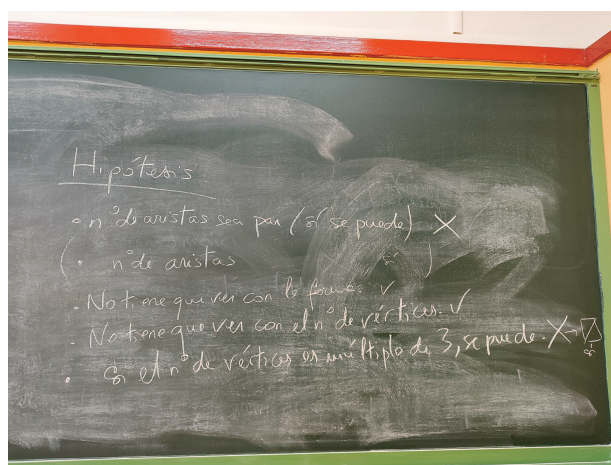 Hipótesis
• nº de aristas sea par (sí se puede) X
( • nº de aristas )
. No tiene que ver con la forma. √
. No tiene que ver con el nº de vértices. √
• Si el nº de vértices es múltiplo de 3, se puede. X →